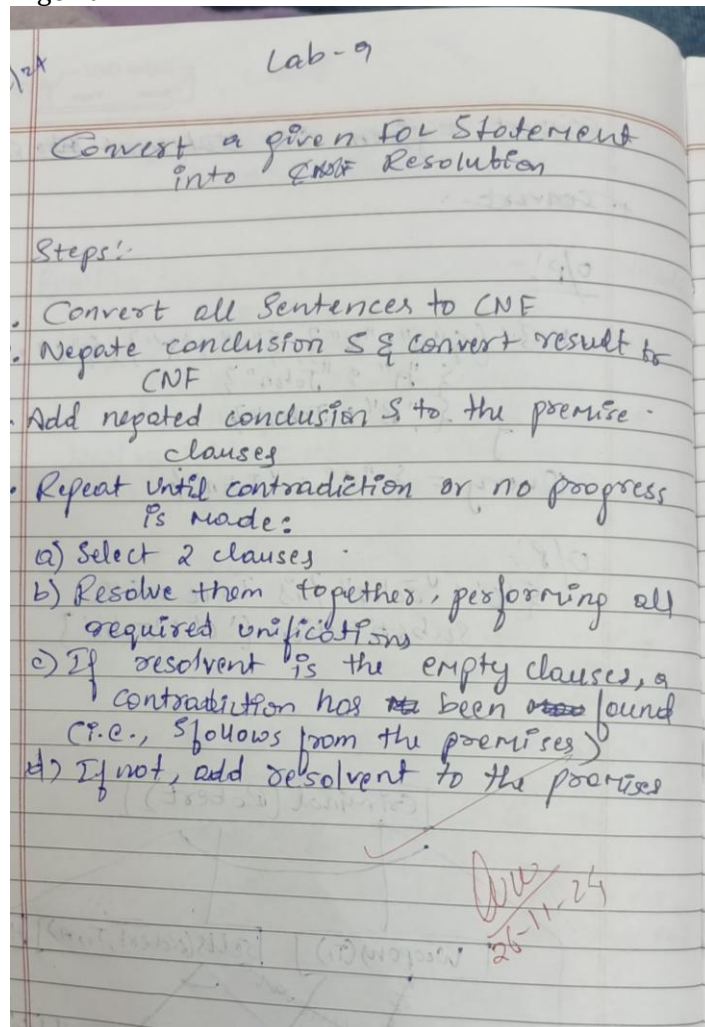 Lab-9
Convert a given FOL Statement
into Resolution
Steps:-
. Convert all Sentences to CNF
. Negate conclusion S & convert result to
CNF
. Add negated conclusion S to the premise
clauses
. Repeat until contradiction or no progress
is made:
a) Select 2 clauses
b) Resolve them together, performing all
required unifications
c) If resolvent is the empty clauses, a
contradiction has been found
(i.e., S follows from the premises)
d) If not, add resolvent to the premises
26-11-24